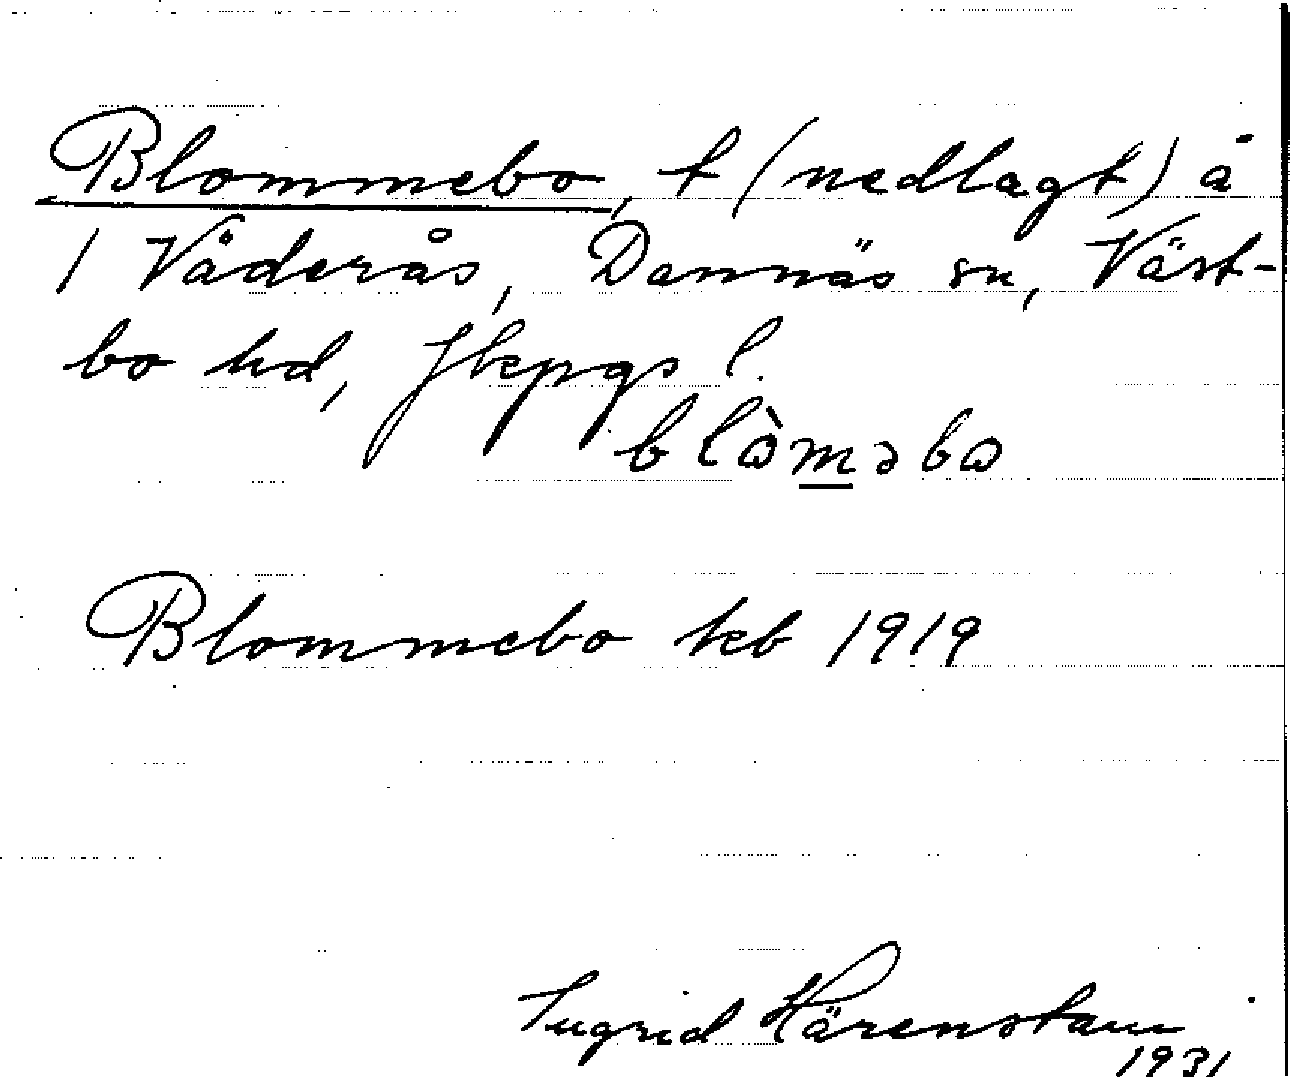 Blommebo, t (nedlagt) å
1 Väderås, Dannäs sn, Väst-
bo hd, Jkpgs l.
blòməbo
Blommebo kb 1919
Ingrid Härenstam
1931